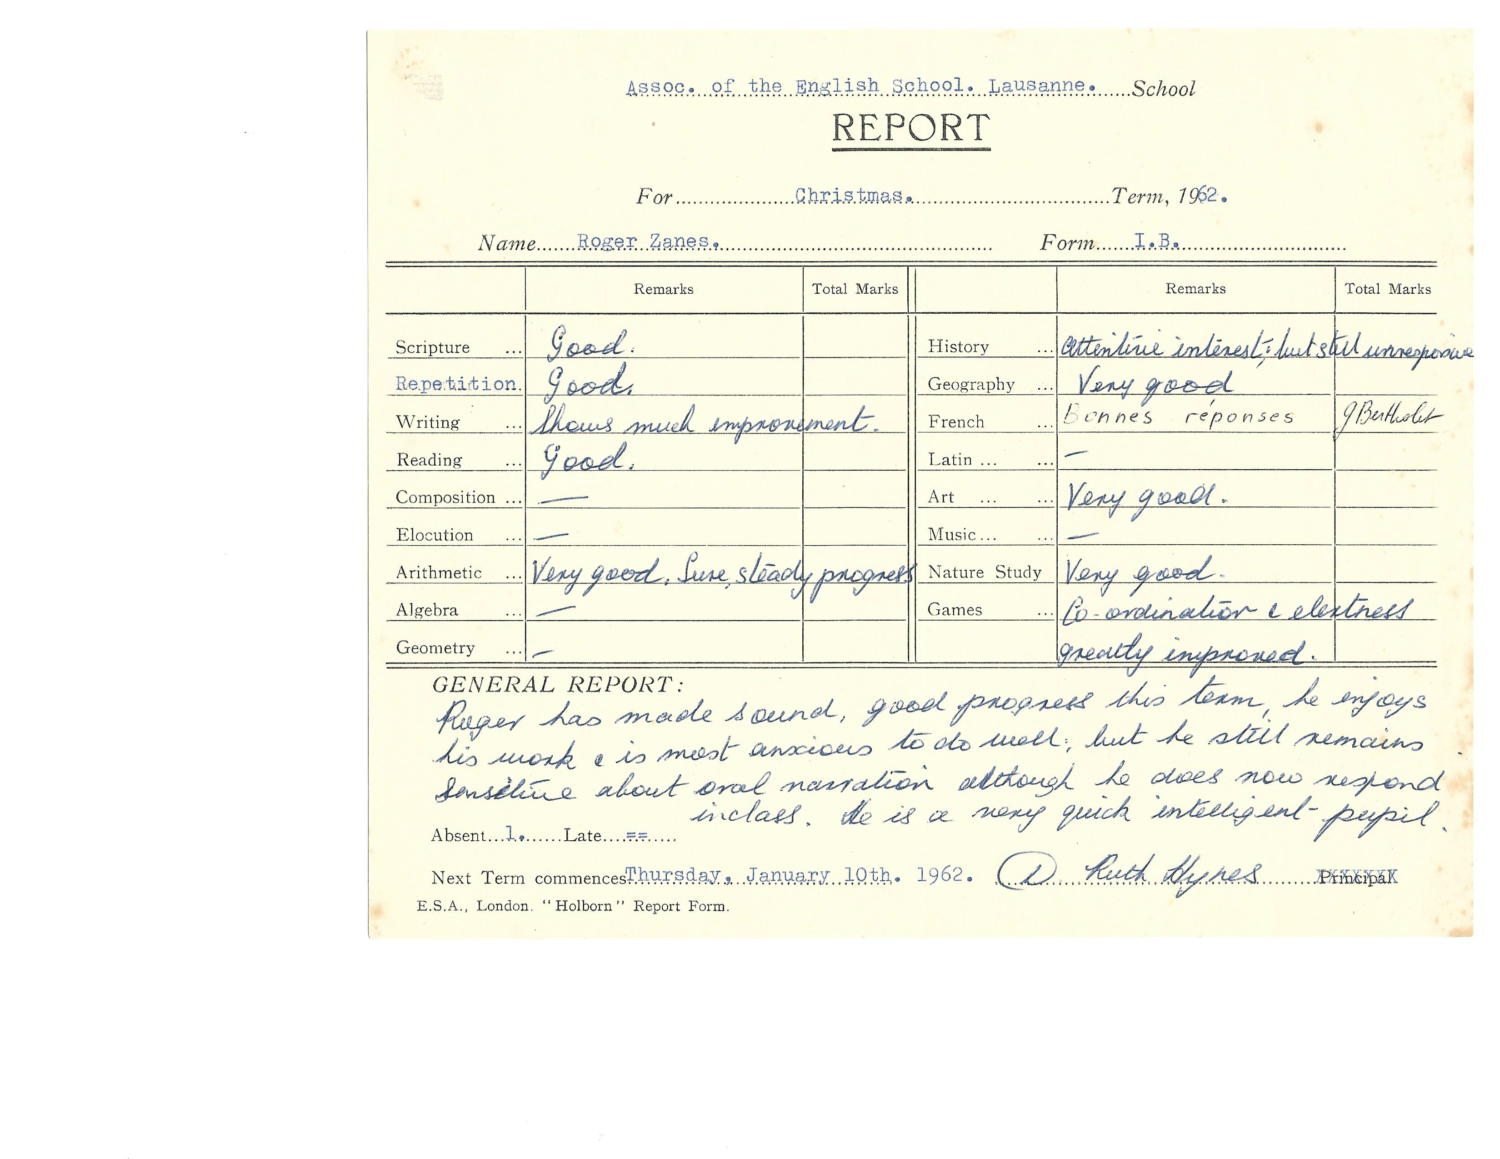 Assoc. of the English School. Lausanne. School
REPORT
For Christmas. Term, 1962.
Name Roger Zanes. Form I.B.
Remarks Total Marks Remarks Total Marks
Scripture ... Good. History ... Attentive interest; but still unresponsive
Repetition. Good. Geography ... Very good
Writing ... Shows much improvement. French ... Bonnes réponses J Bertholet
Reading ... Good. Latin ... ... —
Composition ... — Art ... ... Very good.
Elocution ... — Music ... ... —
Arithmetic ... Very good. Sure, steady progress Nature Study Very good.
Algebra ... — Games ... Co-ordination & alertness
Geometry ... — greatly improved.
GENERAL REPORT:
Roger has made sound, good progress this term, he enjoys
his work & is most anxious to do well; but he still remains
sensitive about oral narration although he does now respond
in class. He is a very quick intelligent pupil.
Absent...1.......Late....==.....
Next Term commences Thursday, January 10th. 1962. (1) Ruth Hynes Principal
E.S.A., London. "Holborn" Report Form.